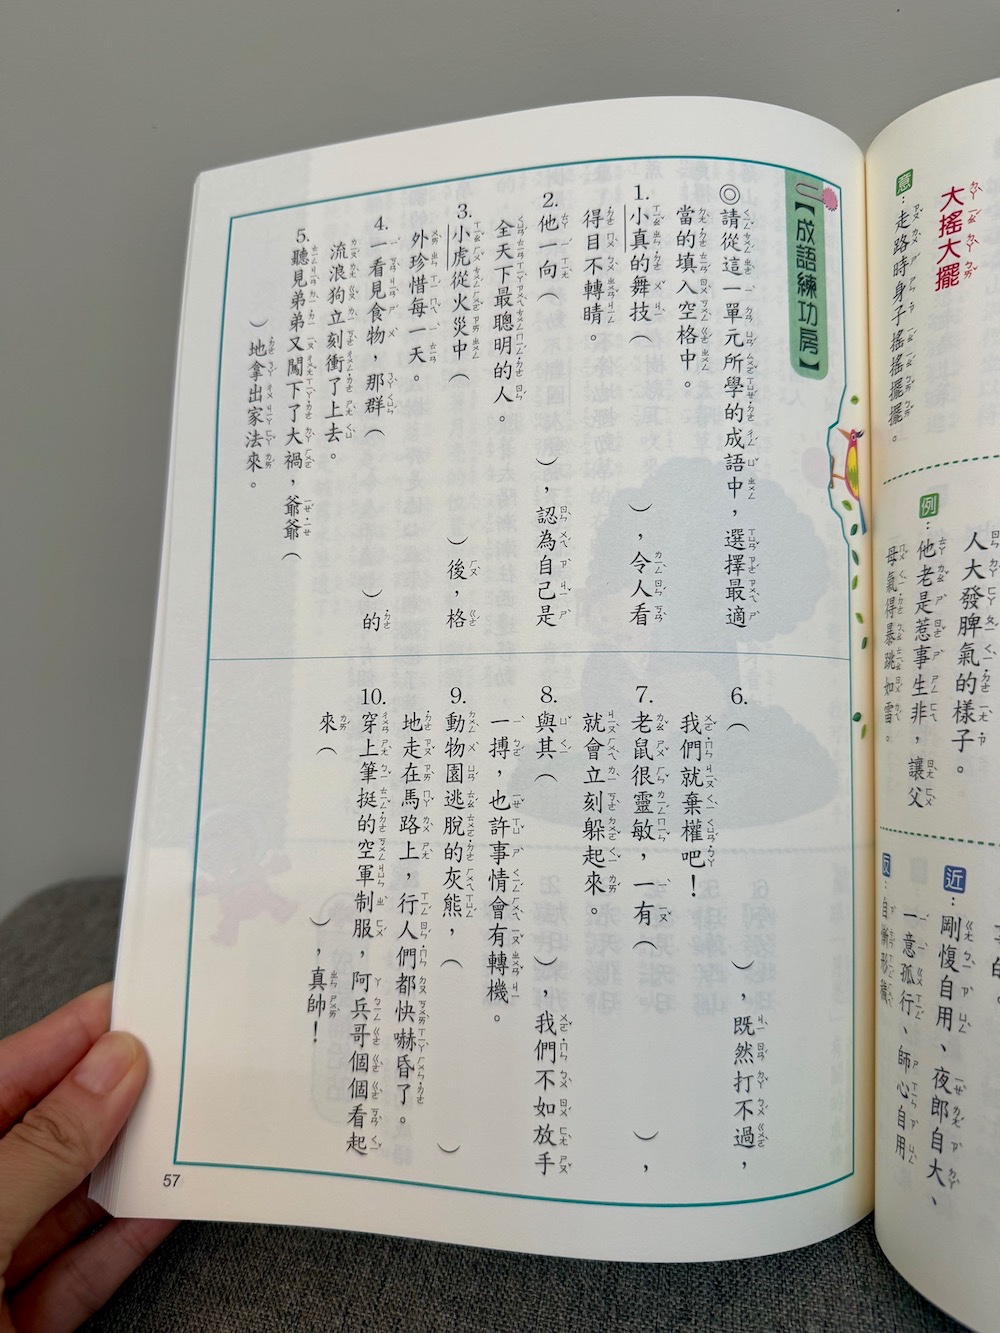 【成語練功房】
◎請從這一單元所學的成語中，選擇最適
當的填入空格中。
1.小真的舞技（　　　），令人看
得目不轉睛。
2.他一向（　　　），認為自己是
全天下最聰明的人。
3.小虎從火災中（　　　）後，格
外珍惜每一天。
4.一看見食物，那群（　　　）的
流浪狗立刻衝了上去。
5.聽見弟弟又闖下了大禍，爺爺（
　　　）地拿出家法來。
6.（　　　），既然打不過，
我們就棄權吧！
7.老鼠很靈敏，一有（　　　），
就會立刻躲起來。
8.與其（　　　），我們不如放手
一搏，也許事情會有轉機。
9.動物園逃脫的灰熊，（　　　）
地走在馬路上，行人們都快嚇昏了。
10.穿上筆挺的空軍制服，阿兵哥個個看起
來（　　　），真帥！
57
大搖大擺
意：走路時身子搖搖擺擺。
人大發脾氣的樣子。
例：他老是惹事生非，讓父
母氣得暴跳如雷。
近：剛愎自用、夜郎自大、
一意孤行、師心自用